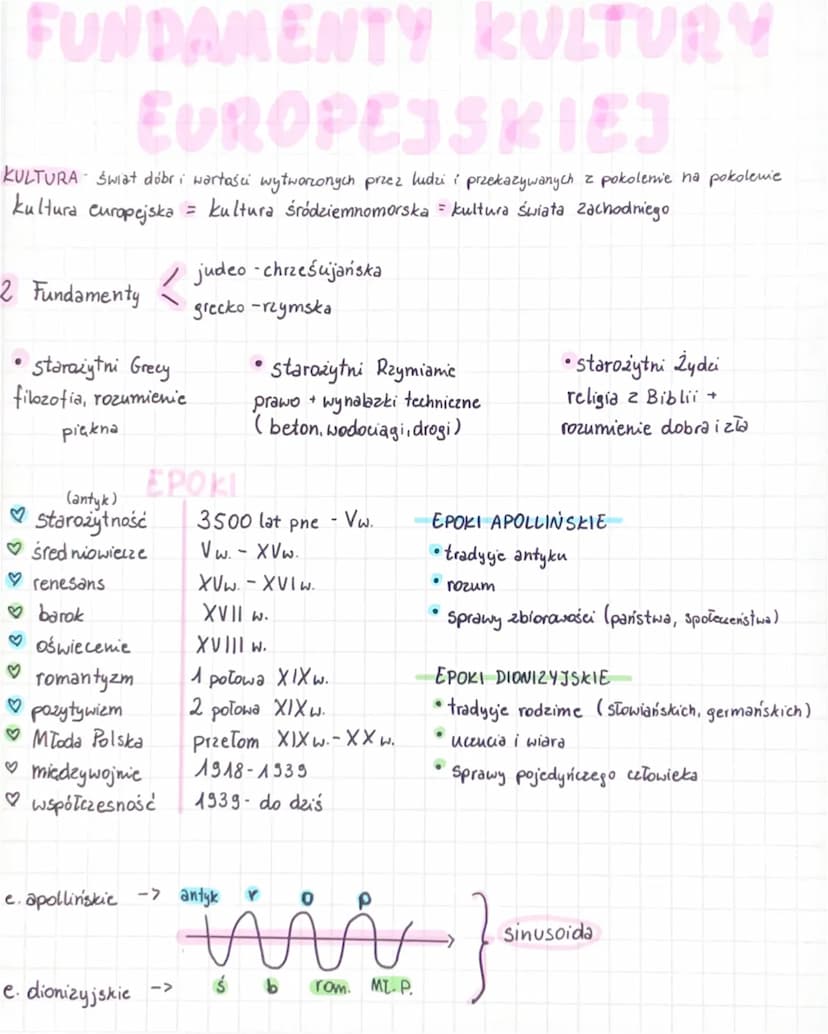 FUNDAMENTY KULTURY
EUROPEJSKIEJ
KULTURA - świat dóbr i wartości wytworzonych przez ludzi i przekazywanych z pokolenie na pokolenie
kultura europejska = kultura śródziemnomorska = kultura świata zachodniego
2 Fundamenty < judeo - chrześcijańska
grecko - rzymska
• starożytni Grecy
filozofia, rozumienie
piękna
• starożytni Rzymianie
prawo + wynalazki techniczne
(beton, wodociągi, drogi)
• starożytni Żydzi
religia z Biblii +
rozumienie dobra i zła
EPOKI
(antyk)
♡ starożytność 3500 lat pne - Vw.
♡ średniowiecze Vw. - XVw.
♡ renesans XVw. - XVIw.
♡ barok XVII w.
♡ oświecenie XVIII w.
♡ romantyzm 1 połowa XIXw.
♡ pozytywizm 2 połowa XIXw.
♡ Młoda Polska przełom XIXw. - XX w.
♡ międzywojnie 1918-1939
♡ współczesność 1939- do dziś
EPOKI APOLLIŃSKIE
• tradycje antyku
• rozum
• sprawy zbiorowości (państwa, społeczeństwa)
EPOKI DIONIZYJSKIE
• tradycje rodzime (słowiańskich, germańskich)
• uczucia i wiara
• sprawy pojedyńczego człowieka
e. apollińskie -> antyk r o p
} sinusoida
e. dionizyjskie -> ś b rom. Mł. P.